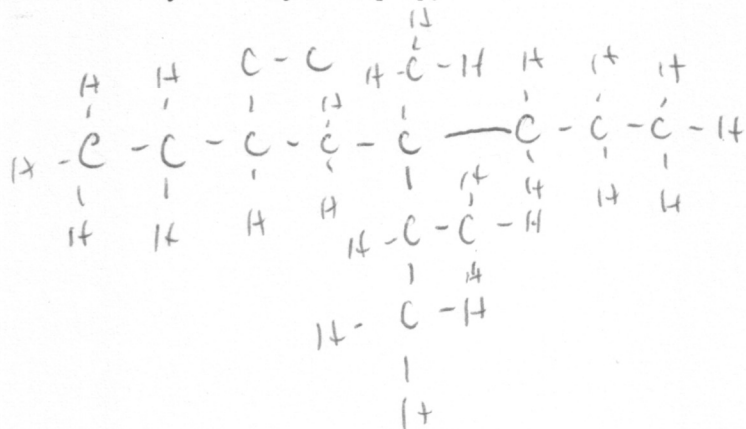 H
C - C H - C - H H H H
H H
H - C - C - C - C - C — C - C - C - H
H H H H H H H H
H - C - C - H
H
H - C - H
H